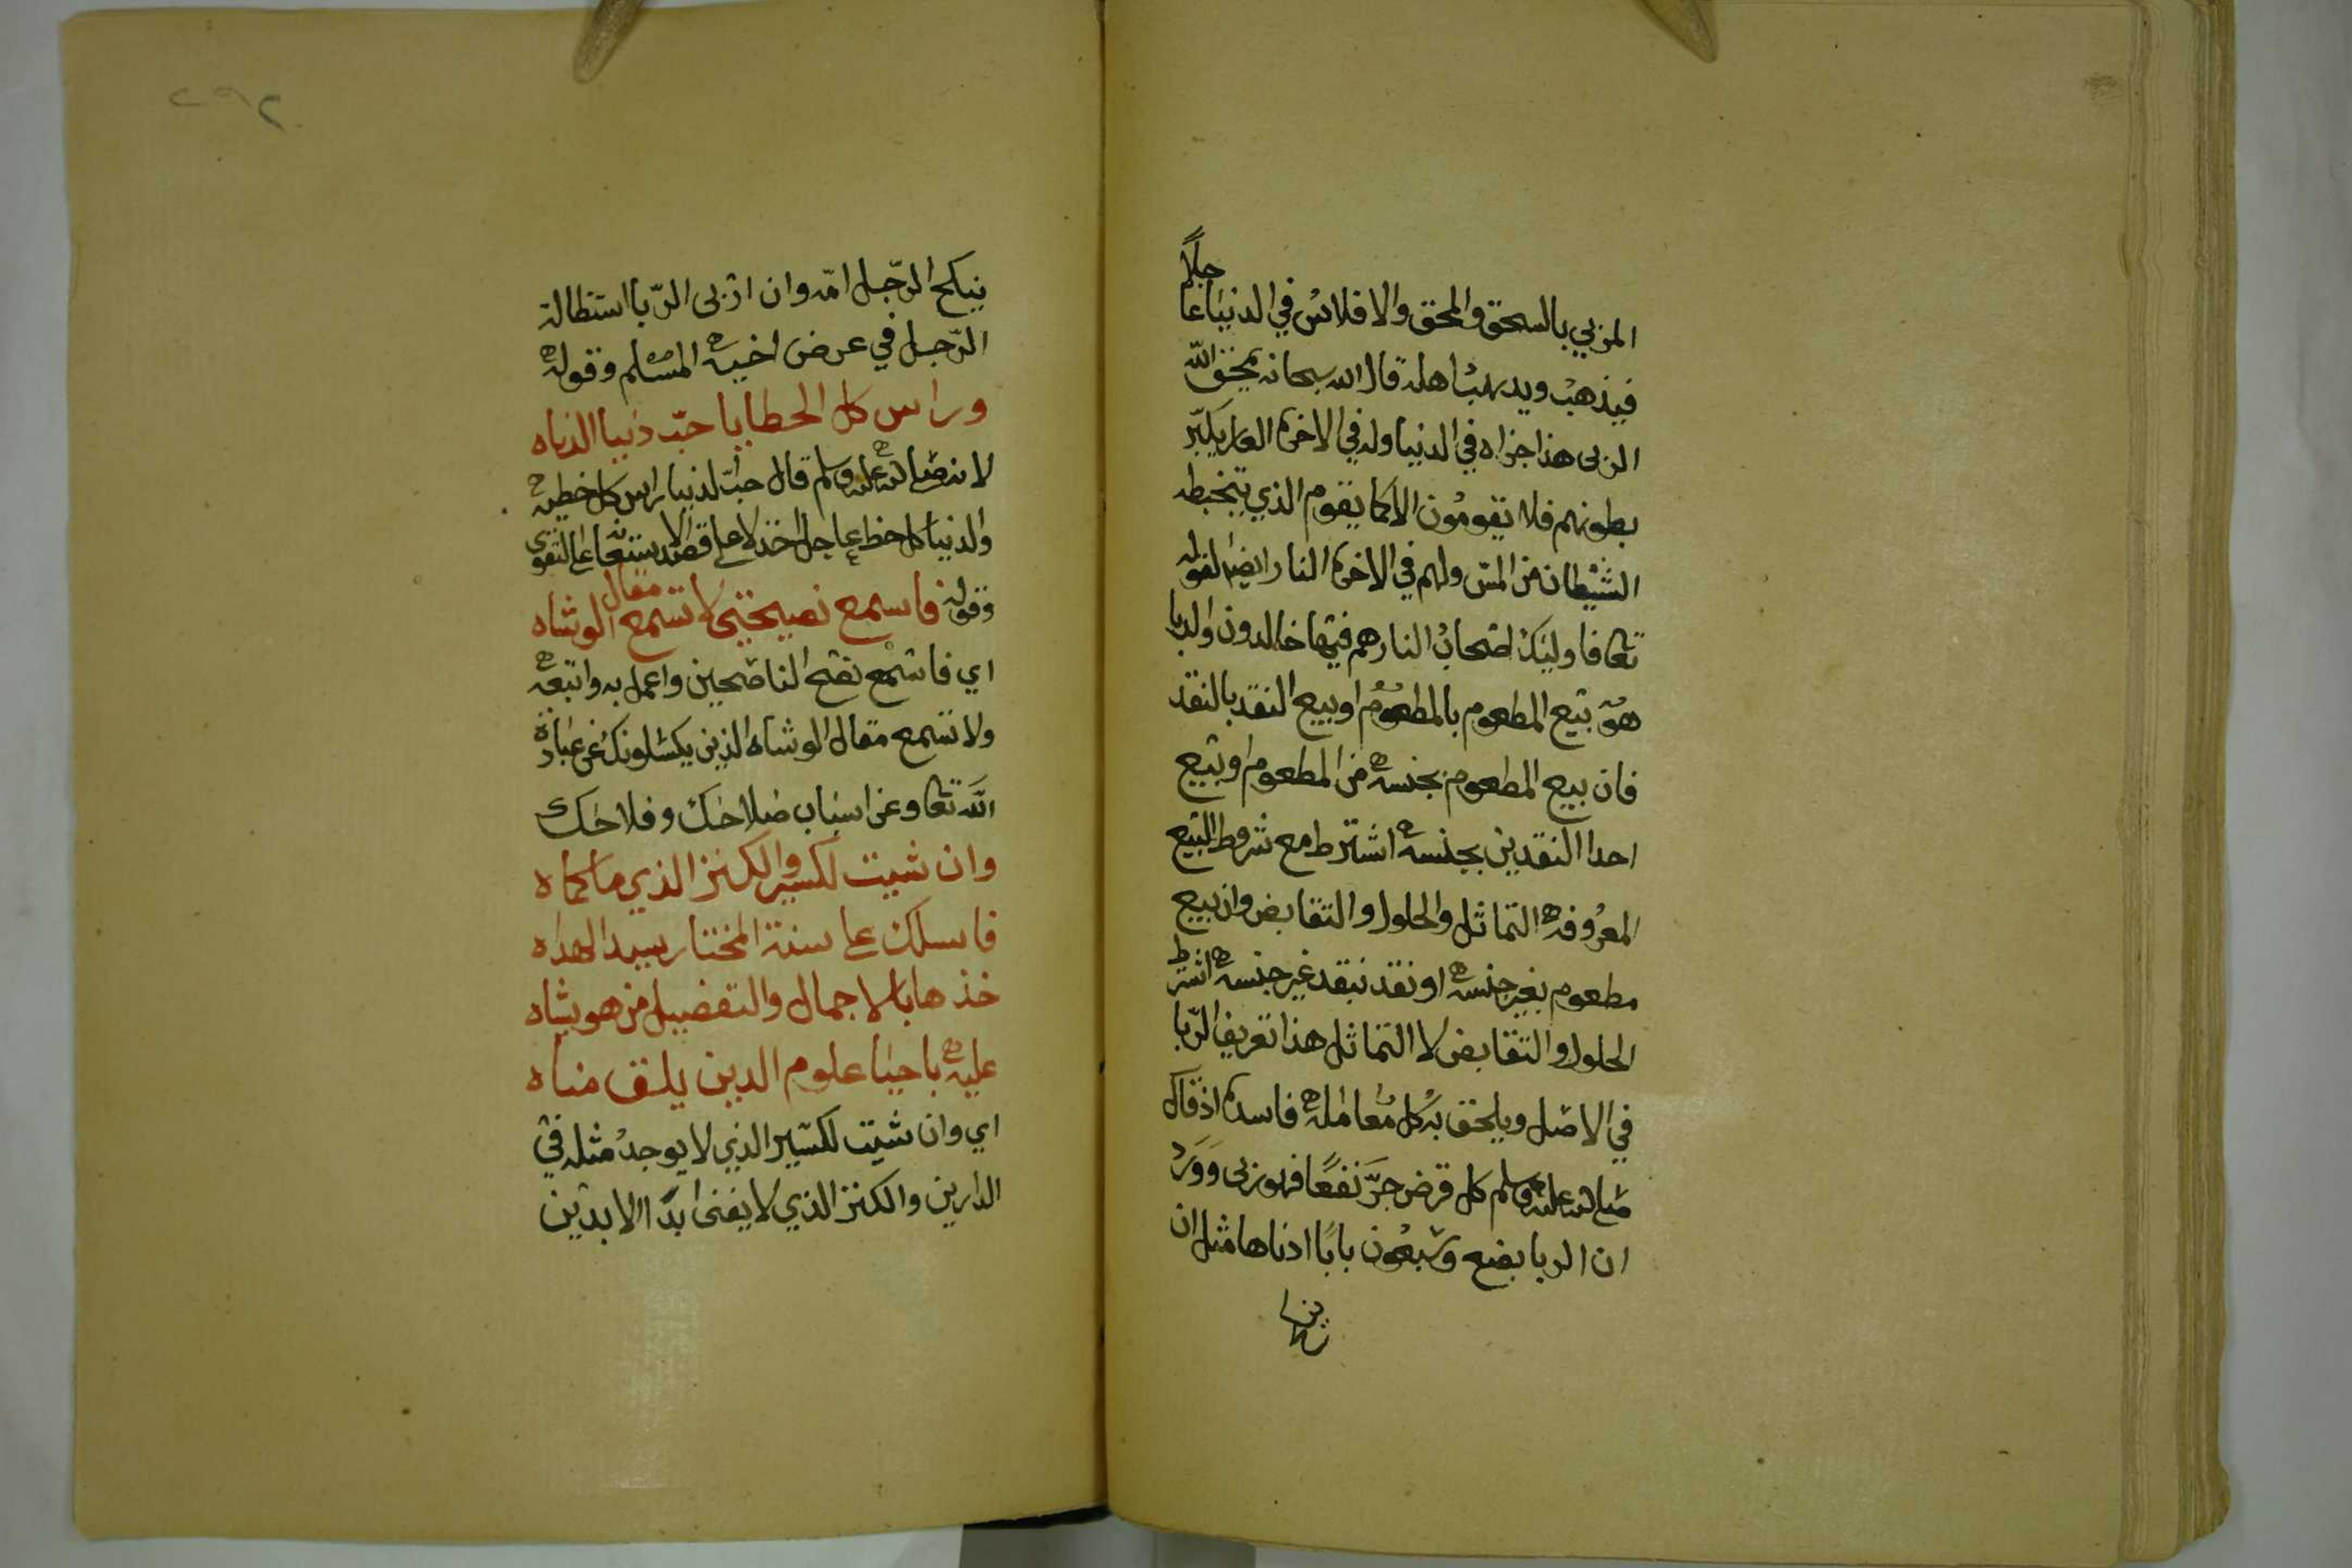 المربي بالسحق والمحق والافلاس في الدنيا عاجلاً
فيذهب ويذهب اهله قال الله سبحانه يمحق الله
الربى هذا جزاه في الدنيا وله في الاخرة العار يكبّر
بطونهم فلا يقومون الا كما يقوم الذي يتخبطه
الشيطان من المس ولهم في الاخرة النار ايضا لقوله
تعا فاوليك اصحاب النار هم فيها خالدون والربا
هو بيع المطعوم بالمطعوم او بيع النقد بالنقد
فان بيع المطعوم بجنسه من المطعوم او بيع
احدا النقدين بجنسه اشترط مع شروط البيع
المعروفه التماثل والحلول والتقابض وان بيع
مطعوم بغير جنسه او نقد بنقد غير جنسه اشترط
الحلول والتقابض لا التماثل هذا تعريف الرّبا
في الاصل ويلحق به كل معامله فاسدة اذ قال
صلى الله عليه وسلم كل قرض جرَّ نفعًا فهو ربى وَوَرَد
ان الربا بضع وسبعون بابًا ادناها مثل ان
ينكح الرّجل امّه وان اربى الرّبا استطالة
الرّجل في عرض اخيه المسلم وقوله
وراس كل الخطايا حبّ دنيا الدناه
لانه صلى الله عليه وسلم قال حبّ الدنيا راس كل خطيه
والدنيا كل حظ عاجل اخذ لا على قصد الاستعانة على التقوى
وقوله فاسمع نصيحتي لا تسمع مقال الوشاه
اي فاسمع نصح الناصحين واعمل به واتبعه
ولا تسمع مقال الوشاه الذين يكسلونك عن عبادة
الله تعا وعن اسباب صلاحك وفلاحك
وان شيت لكسير والكنز الذي ما كماه
فاسلك على سنة المختار سيد الهداه
خذها بالاجمال والتفضيل من هو يشاه
عليه باحيا علوم الدين يلق مناه
اي وان شيت لكسير الذي لا يوجد مثله في
الدارين والكنز الذي لا يفنى ابدًا الابدين
٢٩٢